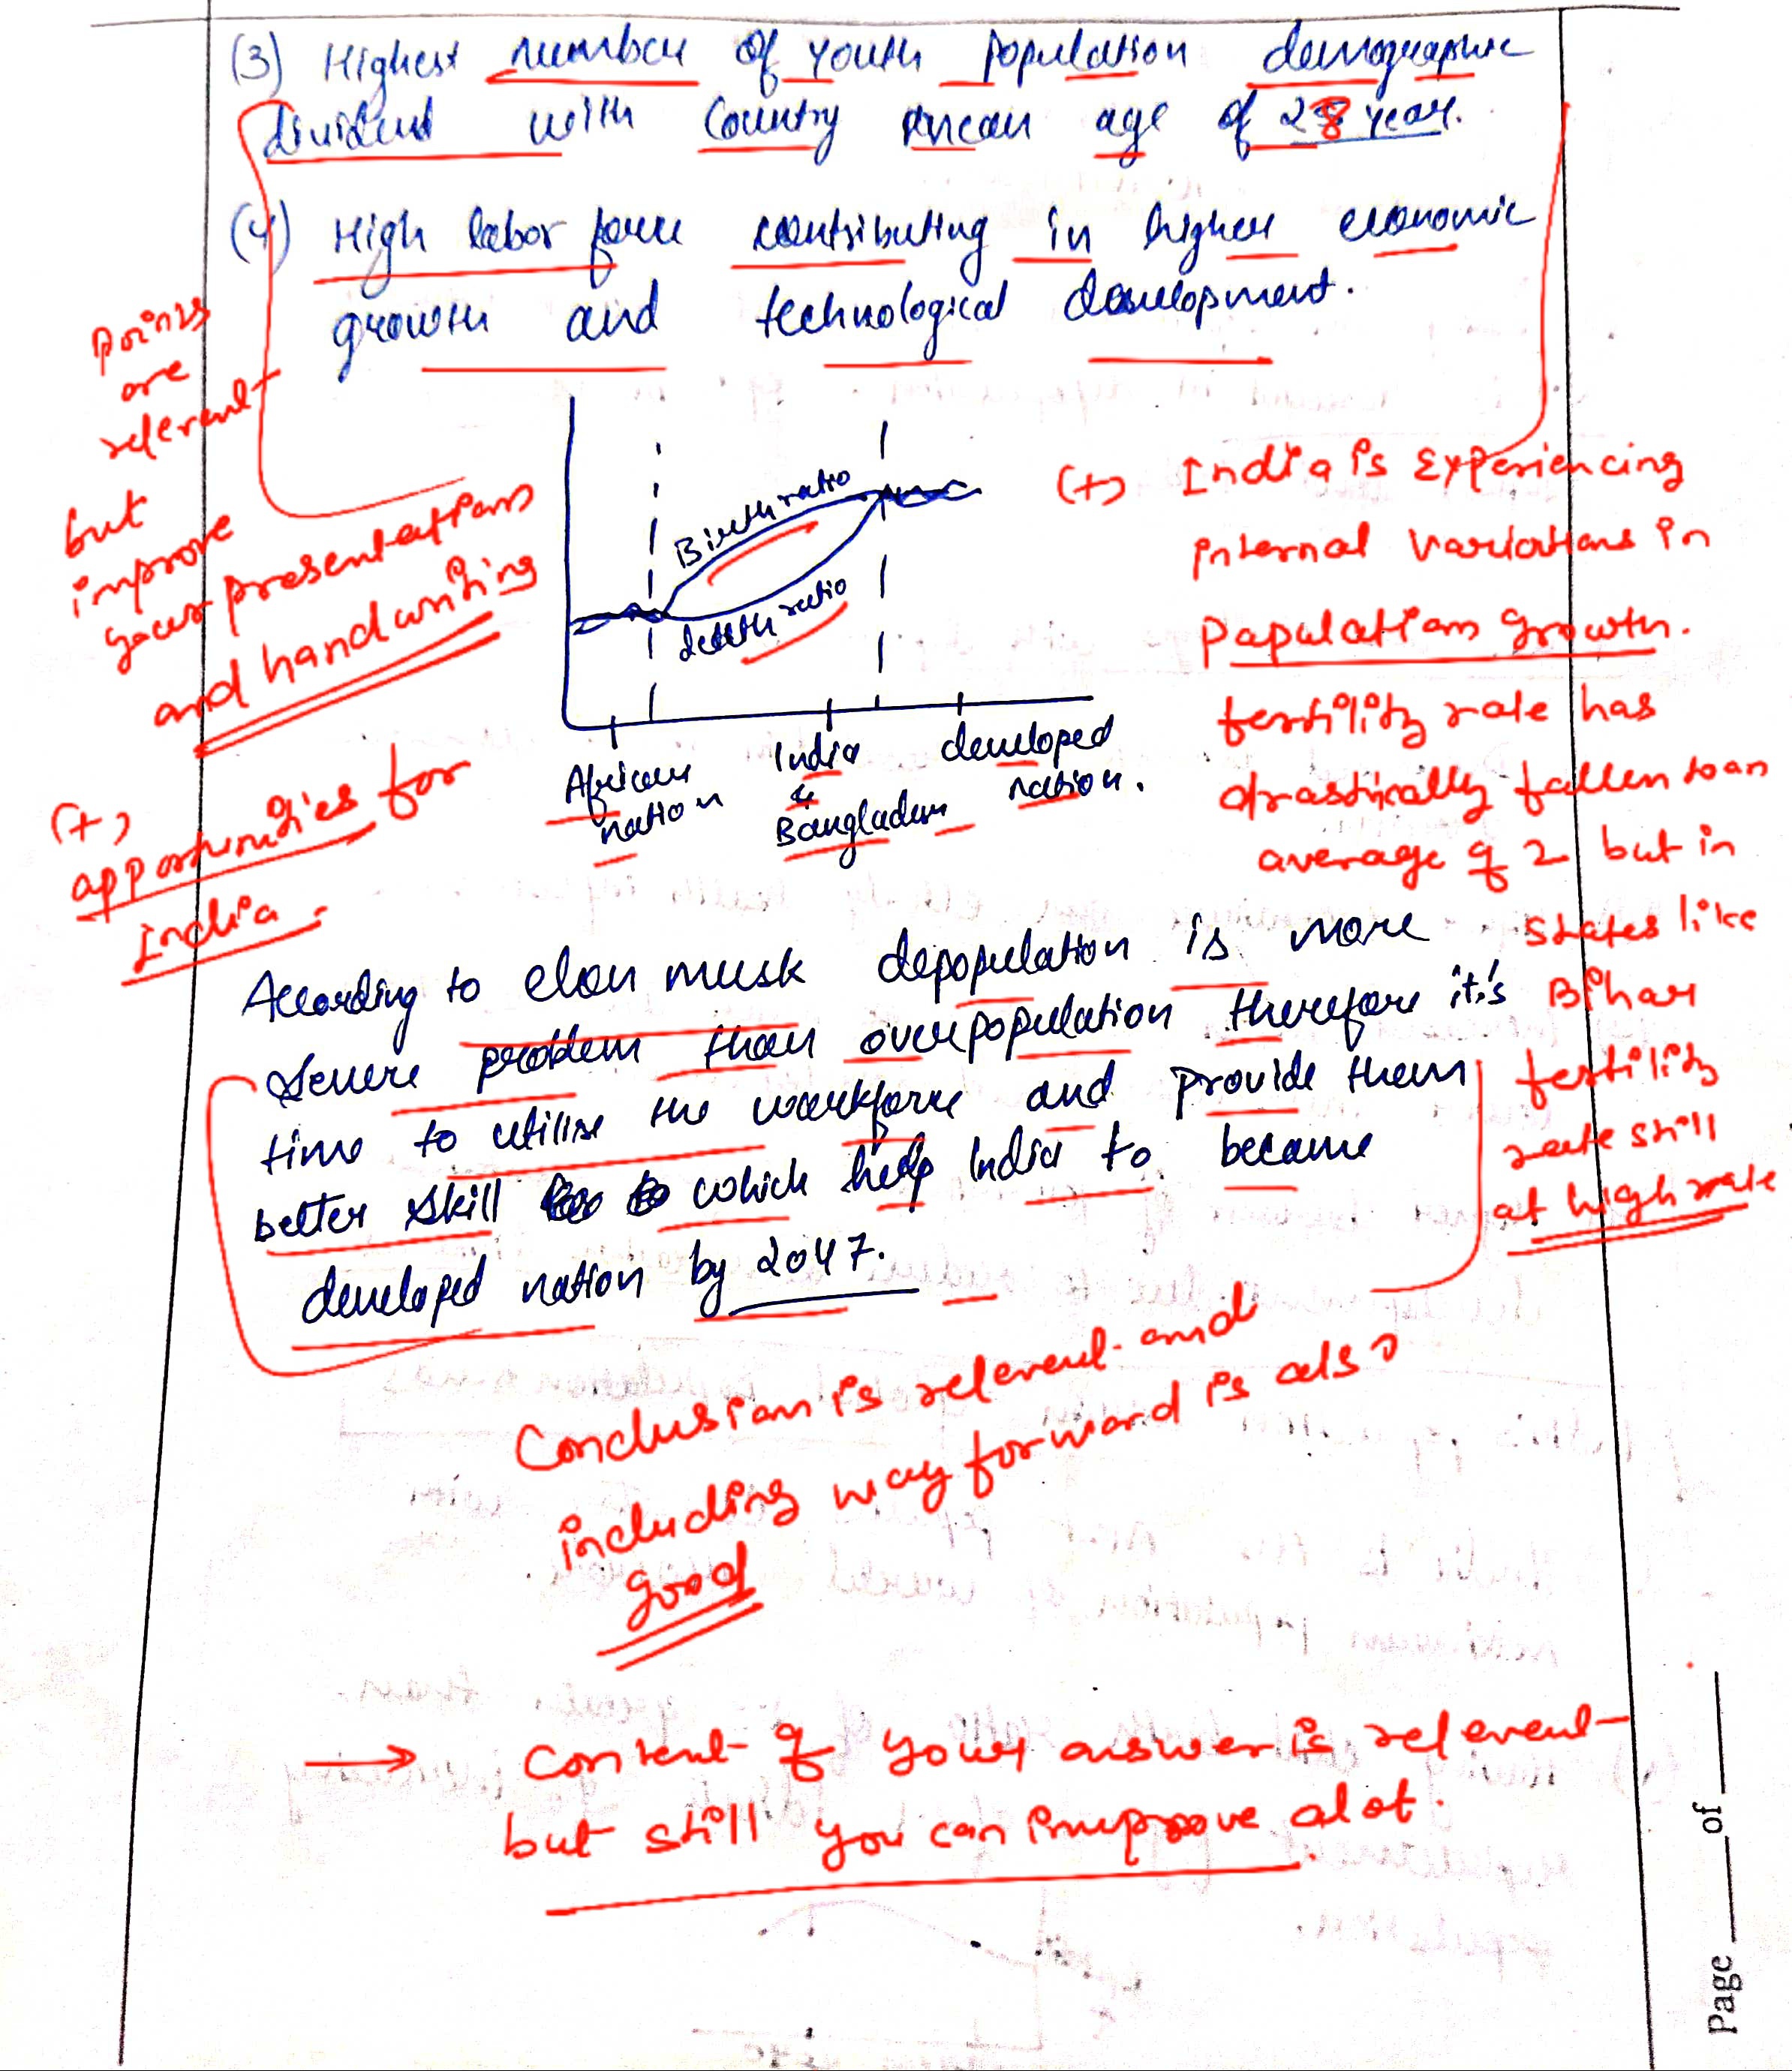 (3) Highest number of youth population demographic
dividend with Country mean age of 28 year.
(4) High labor force contributing in higher economic
growth and technological development.
points
are
relevent
but
improve
your presentations
and handwriting
(+)
opportunities for
India.
Birth ratio
death ratio
African
nation
India
&
Bangladesh
developed
nation.
(+) India is Experiencing
internal variations in
Population Growth.
fertility rate has
drastically fallen to an
average of 2 but in
States like
Bihar
fertility
rate still
at high rate
According to elon musk depopulation is more
severe problem than overpopulation therefore it's
time to utilise the workforce and provide them
better skill which help India to became
developed nation by 2047.
Conclusion is relevent and
including way forward is also
good
→ Content of your answer is relevent
but still you can improve alot.
Page ____ of ____